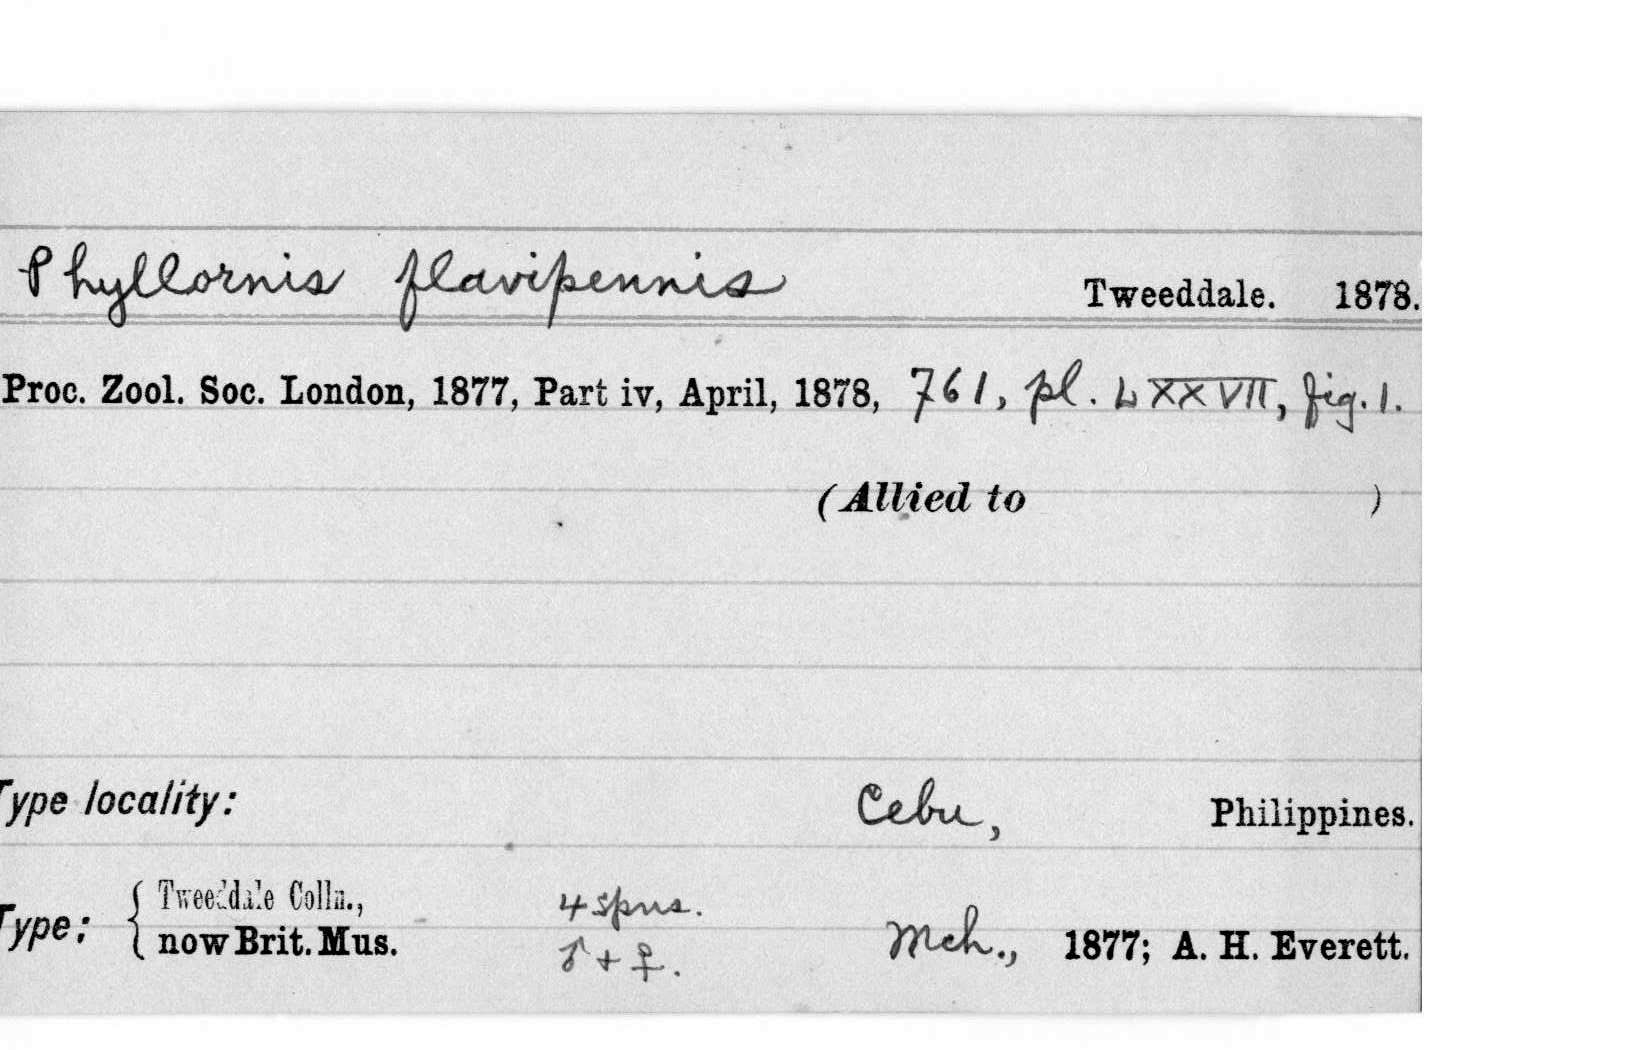 Phyllornis flavipennis Tweeddale. 1878.
Proc. Zool. Soc. London, 1877, Part iv, April, 1878, 761, pl. LXXVII, fig. 1.
(Allied to )
Type locality: Cebu, Philippines.
Type: { Tweeddale Colln., 4 spns.
now Brit. Mus. ♂ + ♀. Mch., 1877; A. H. Everett.